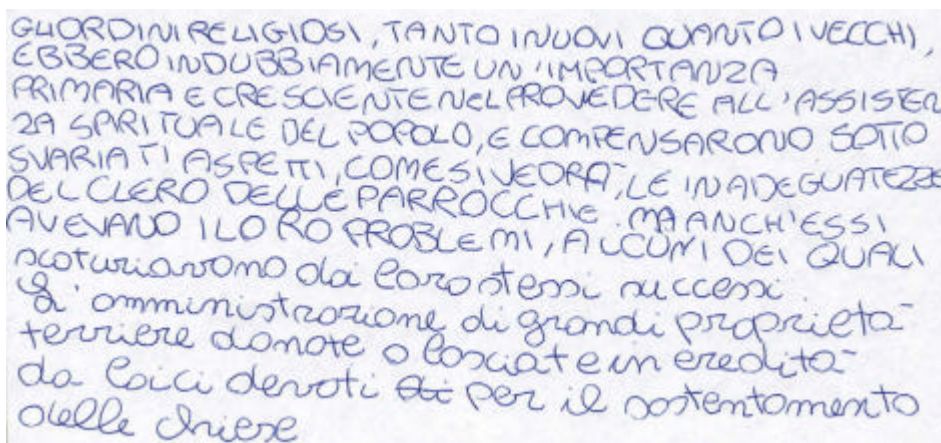 GLI ORDINI RELIGIOSI, TANTO I NUOVI QUANTO I VECCHI,
EBBERO INDUBBIAMENTE UN'IMPORTANZA
PRIMARIA E CRESCIENTE NEL PROVVEDERE ALL'ASSISTEN
ZA SPIRITUALE DEL POPOLO, E COMPENSARONO SOTTO
SVARIATI ASPETTI, COME SI VEDRA', LE INADEGUATEZZE
DEL CLERO DELLE PARROCCHIE. MA ANCH'ESSI
AVEVANO I LORO PROBLEMI, ALCUNI DEI QUALI
scaturiavano dai loro stessi successi.
L'amministrazione di grandi proprietà
terriere donate o lasciate in eredità
da laici devoti per il sostentamento
delle chiese